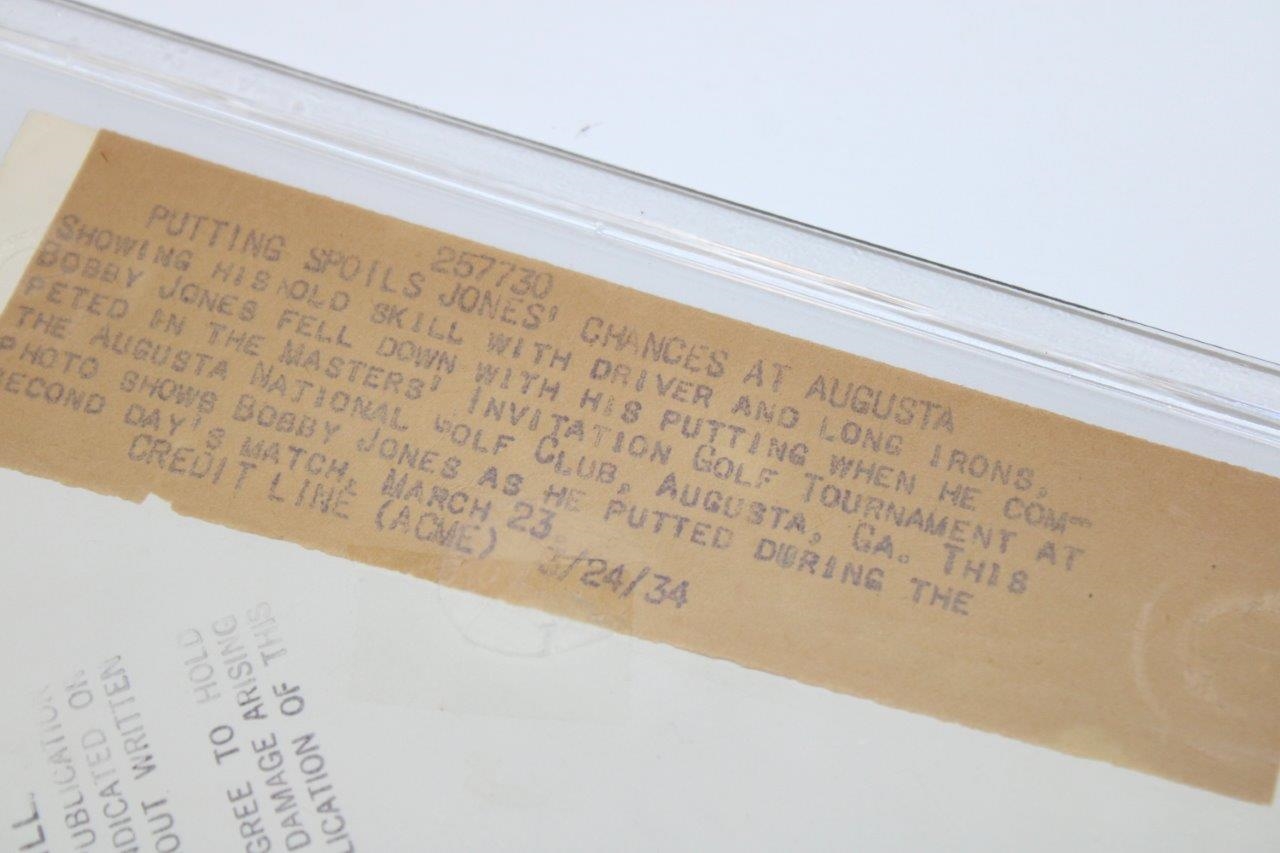 257730
PUTTING SPOILS JONES' CHANCES AT AUGUSTA
SHOWING HIS OLD SKILL WITH DRIVER AND LONG IRONS,
BOBBY JONES FELL DOWN WITH HIS PUTTING WHEN HE COM-
PETED IN THE MASTERS' INVITATION GOLF TOURNAMENT AT
THE AUGUSTA NATIONAL GOLF CLUB, AUGUSTA, GA. THIS
PHOTO SHOWS BOBBY JONES AS HE PUTTED DURING THE
ECOND DAY'S MATCH, MARCH 23.
CREDIT LINE (ACME) 3/24/34
ILL.
UBLICATION
NDICATED ON
OUT WRITTEN
GREE TO HOLD
DAMAGE ARISING
LICATION OF THIS